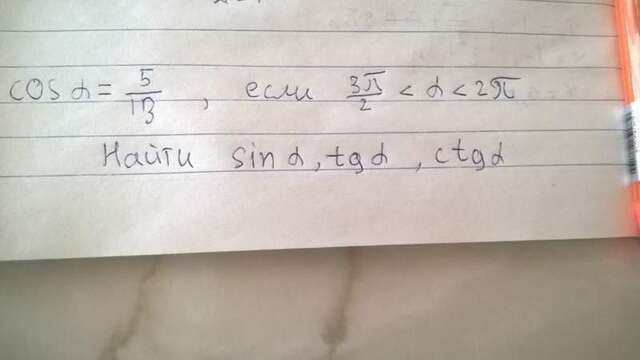 cos α = 5/13, если 3π/2 < α < 2π
Найти sin α, tg α, ctg α